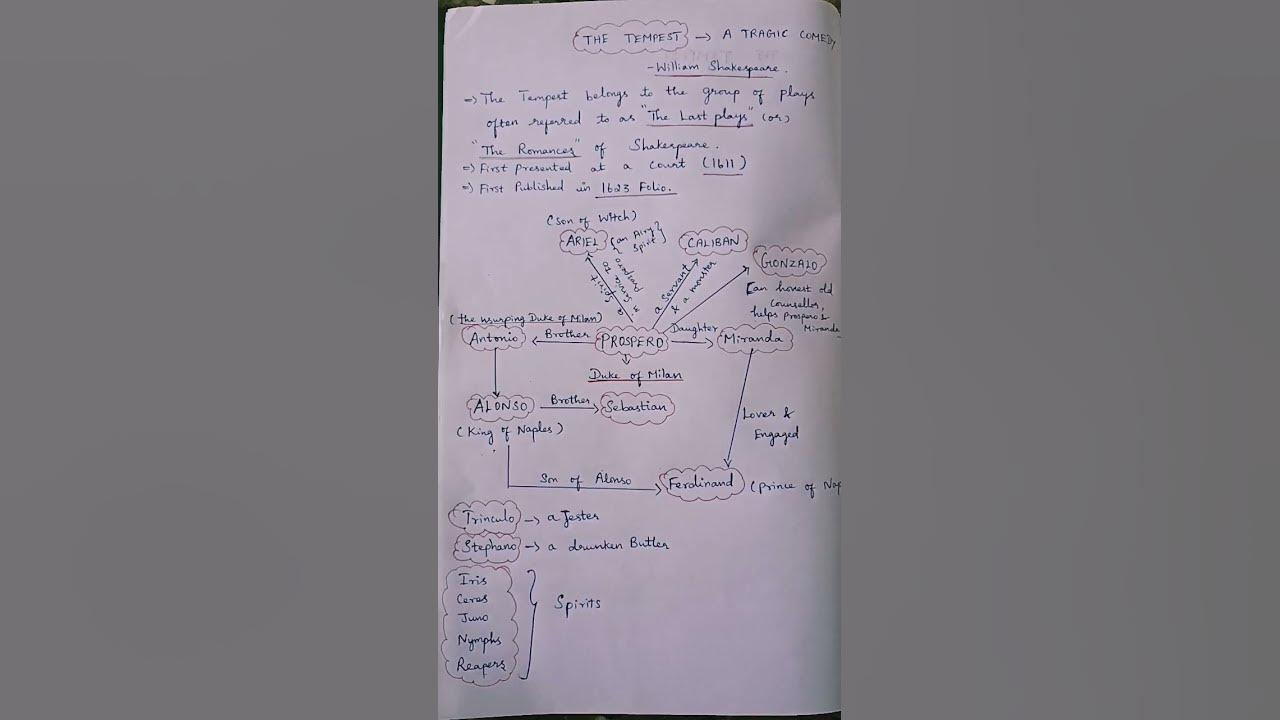 THE TEMPEST → A TRAGIC COMEDY
- William Shakespeare.
⇒ The Tempest belongs to the group of plays
often referred to as "The Last plays" (or)
"The Romances" of Shakespeare.
⇒ First presented at a court (1611)
⇒ First Published in 1623 Folio.
(Son of Witch)
ARIEL {an Airy Spirit}
CALIBAN
GONZALO
a spirit in service to Prospero
a servant & a monster
[an honest old
Counsellor,
helps prospero &
Miranda
(the usurping Duke of Milan)
Antonio ← Brother PROSPERO Daughter → Miranda
Duke of Milan
ALONSO Brother → Sebastian
(King of Naples)
Lover &
Engaged
Son of Alonso → Ferdinand (Prince of Nap
Trinculo → a Jester
Stephano → a drunken Butler
Iris
Ceres
Juno
Nymphs
Reapers
Spirits